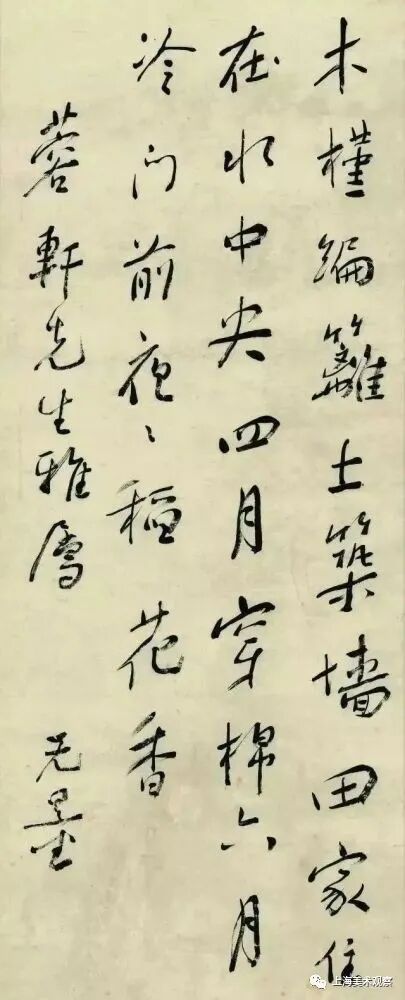 木槿编篱土築墙田家住
在水中央四月穿棉六月
冷门前夜〻稻花香
蓉軒先生雅属 无量
上海美术观察